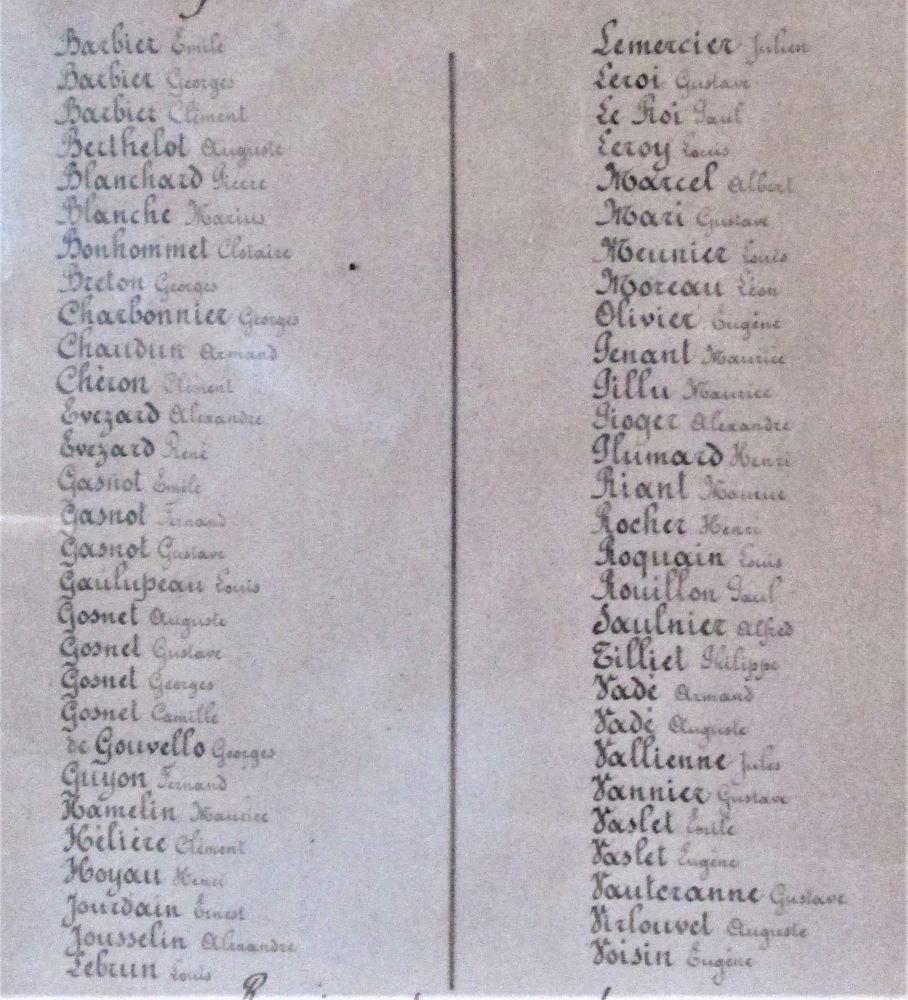 Barbier Emile
Barbier Georges
Barbier Clément
Berthelot Auguste
Blanchard Pierre
Blanche Marius
Bonhommet Clotaire
Breton Georges
Charbonnier Georges
Chaudun Armand
Chéron Clément
Evezard Alexandre
Evezard René
Gasnot Emile
Gasnot Fernand
Gasnot Gustave
Gaulupeau Louis
Gosnet Auguste
Gosnet Gustave
Gosnet Georges
Gosnet Camille
de Gouvello Georges
Guyon Fernand
Hamelin Maurice
Hélière Clément
Hoyau Henri
Jourdain Ernest
Jousselin Alexandre
Lebrun Louis
Lemercier Julien
Leroi Gustave
Le Roi Paul
Leroy Louis
Marcel Albert
Mari Gustave
Meunier Louis
Moreau Léon
Olivier Eugène
Penant Maurice
Pillu Maurice
Pioger Alexandre
Plumard Henri
Riant Maurice
Rocher Henri
Roquain Louis
Rouillon Paul
Saulnier Alfred
Tilliet Philippe
Vadé Armand
Vadé Auguste
Vallienne Jules
Vannier Gustave
Vaslet Emile
Vaslet Eugène
Vauteranne Gustave
Virlouvet Auguste
Voisin Eugène